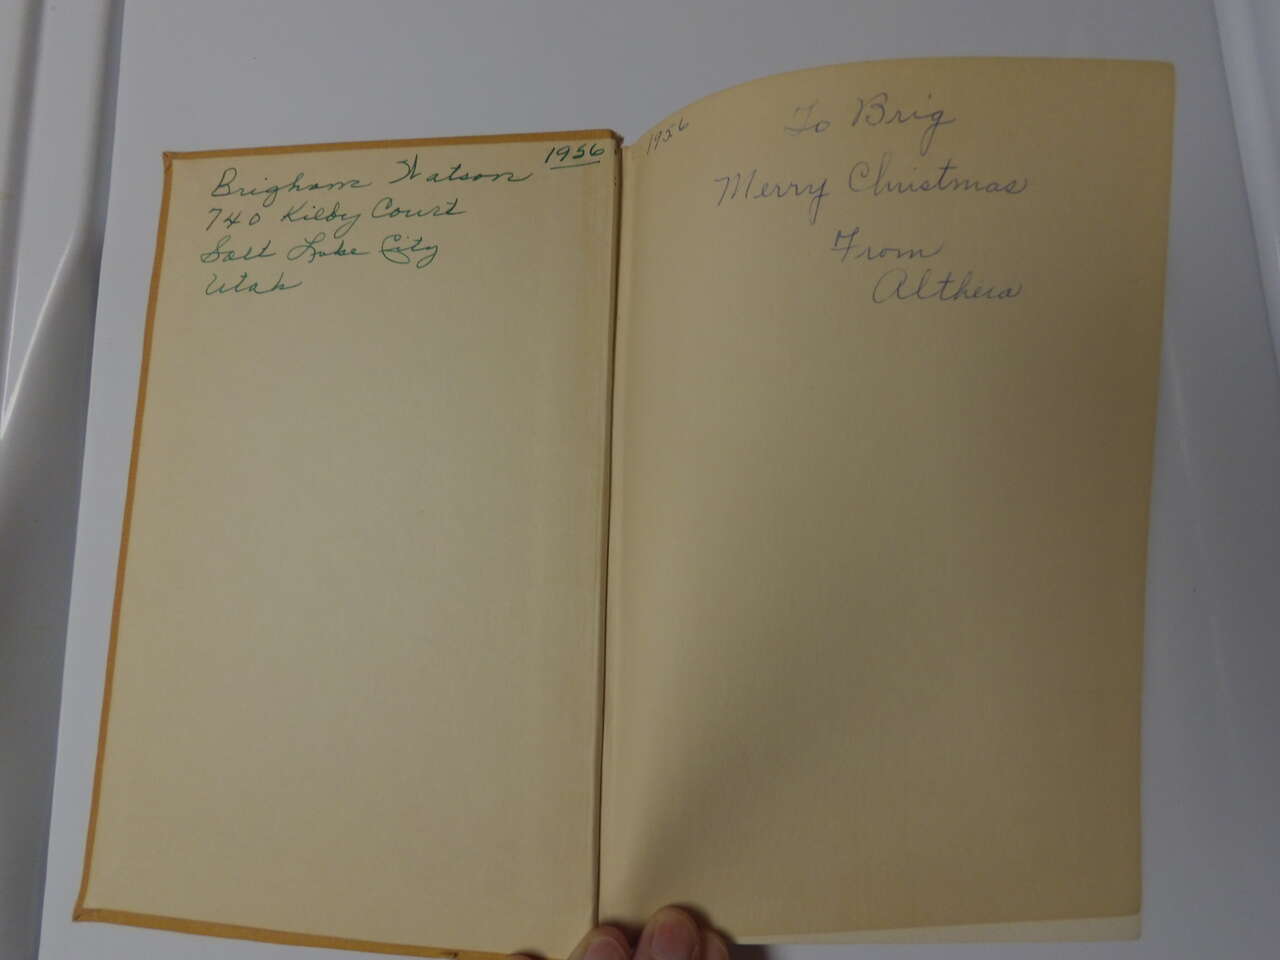 Brigham Watson 1956
740 Kilby Court
Salt Lake City
Utah
1956
To Brig
Merry Christmas
From
Althera